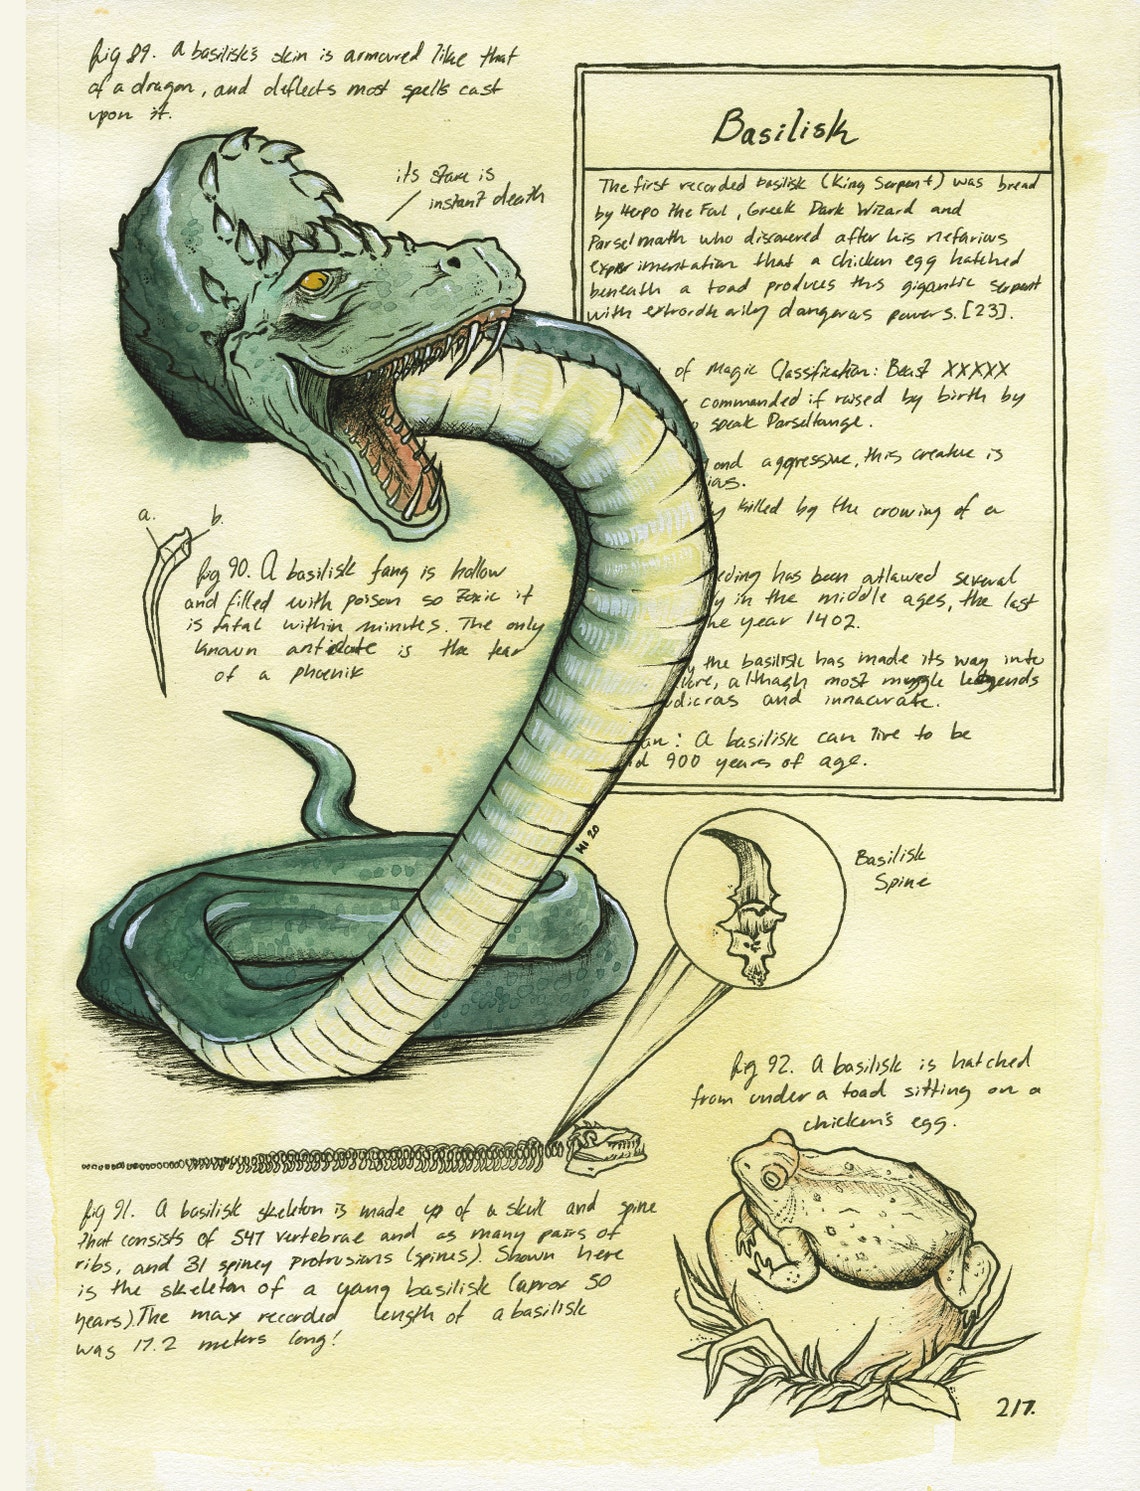 fig 89. A basilisk's skin is armoured like that
of a dragon, and deflects most spells cast
upon it.
its stare is
instant death
Basilisk
The first recorded basilisk (King Serpent) was bread
by Herpo the Foul, Greek Dark Wizard and
Parselmouth who discovered after his nefarious
experimentation that a chicken egg hatched
beneath a toad produces this gigantic serpent
with extrordinarily dangerous powers. [23].
of Magic Classfication: Beast XXXXX
commanded if raised by birth by
speak Parseltounge.
and aggressive, this creature is
ias.
y killed by the crowing of a
eding has been outlawed several
y in the middle ages, the last
he year 1402.
y the basilisk has made its way into
lore, although most muggle legends
udicras and innacurate.
an: A basilisk can live to be
nd 900 years of age.
a.
b.
fig 90. A basilisk fang is hollow
and filled with poison so toxic it
is fatal within minutes. The only
known antidote is the tear
of a phoenix
HI 20
Basilisk
Spine
fig 92. A basilisk is hatched
from under a toad sitting on a
chicken's egg.
fig 91. A basilisk skeleton is made up of a skull and spine
that consists of 547 vertebrae and as many pairs of
ribs, and 31 spiney protrusions (spines). Shown here
is the skeleton of a young basilisk (aprox 50
years). The max recorded length of a basilisk
was 17.2 meters long!
217.